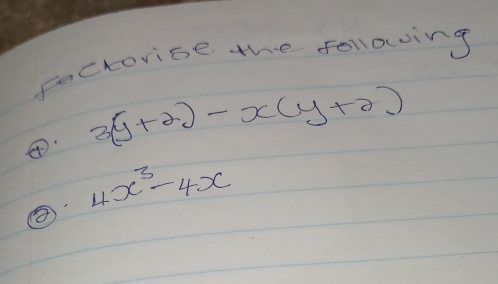 factorise the following
①. 3(y+2) - x(y+2)
②. 4x³ - 4x